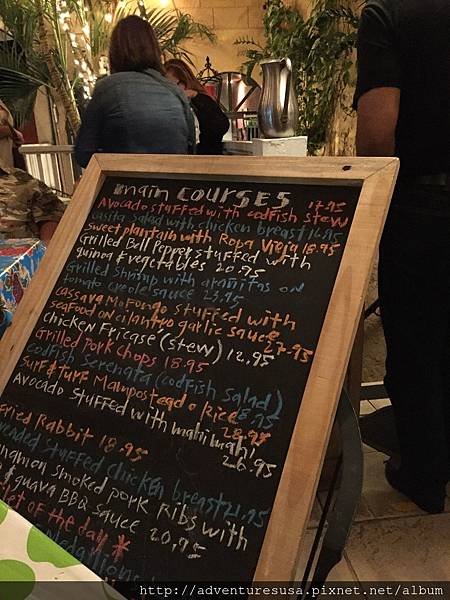 main courses
17.95
Avocado stuffed with codfish stew
Casita Salad with chicken breast 16.95
sweet plantain with Ropa Vieja 18.95
Grilled Bell Pepper stuffed with
quinoa & vegetables 20.95
Grilled Shrimp with arañitas on
tomato creole sauce 23.95
cassava Mofongo stuffed with
seafood on cilantro garlic sauce
27.95
chicken Fricase (stew) 12.95
Grilled Pork chops 18.95
codfish Serenata (codfish salad)
18.95
Surf & turf Mamposteado rice
28.95
Avocado stuffed with mahi mahi
26.95
Fried Rabbit 18.95
Breaded stuffed chicken breast 21.95
cinnamon smoked pork ribs with
& guava BBQ sauce 20.95
of the day *
Medallions
http://adventuresusa.pixnet.net/album